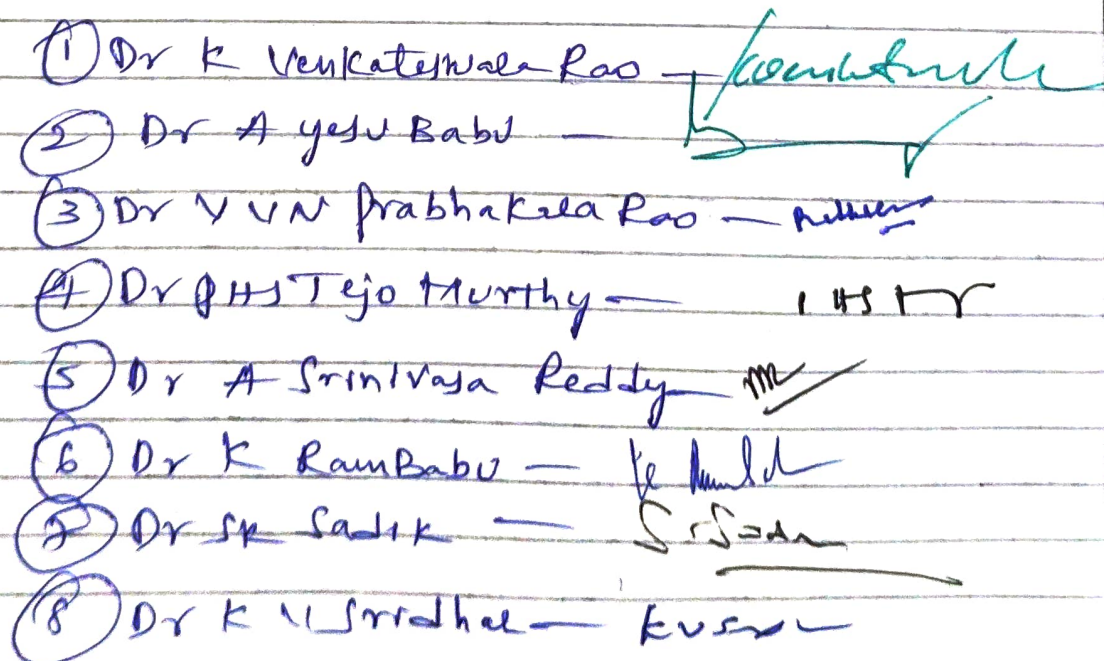 ① Dr K Venkateswara Rao —
② Dr A Yesu Babu —
③ Dr V V N Prabhakara Rao —
④ Dr P H S Tejo Murthy —
⑤ Dr A Srinivasa Reddy —
⑥ Dr K RamBabu —
⑦ Dr SK Sadik —
⑧ Dr K V Sridhar —